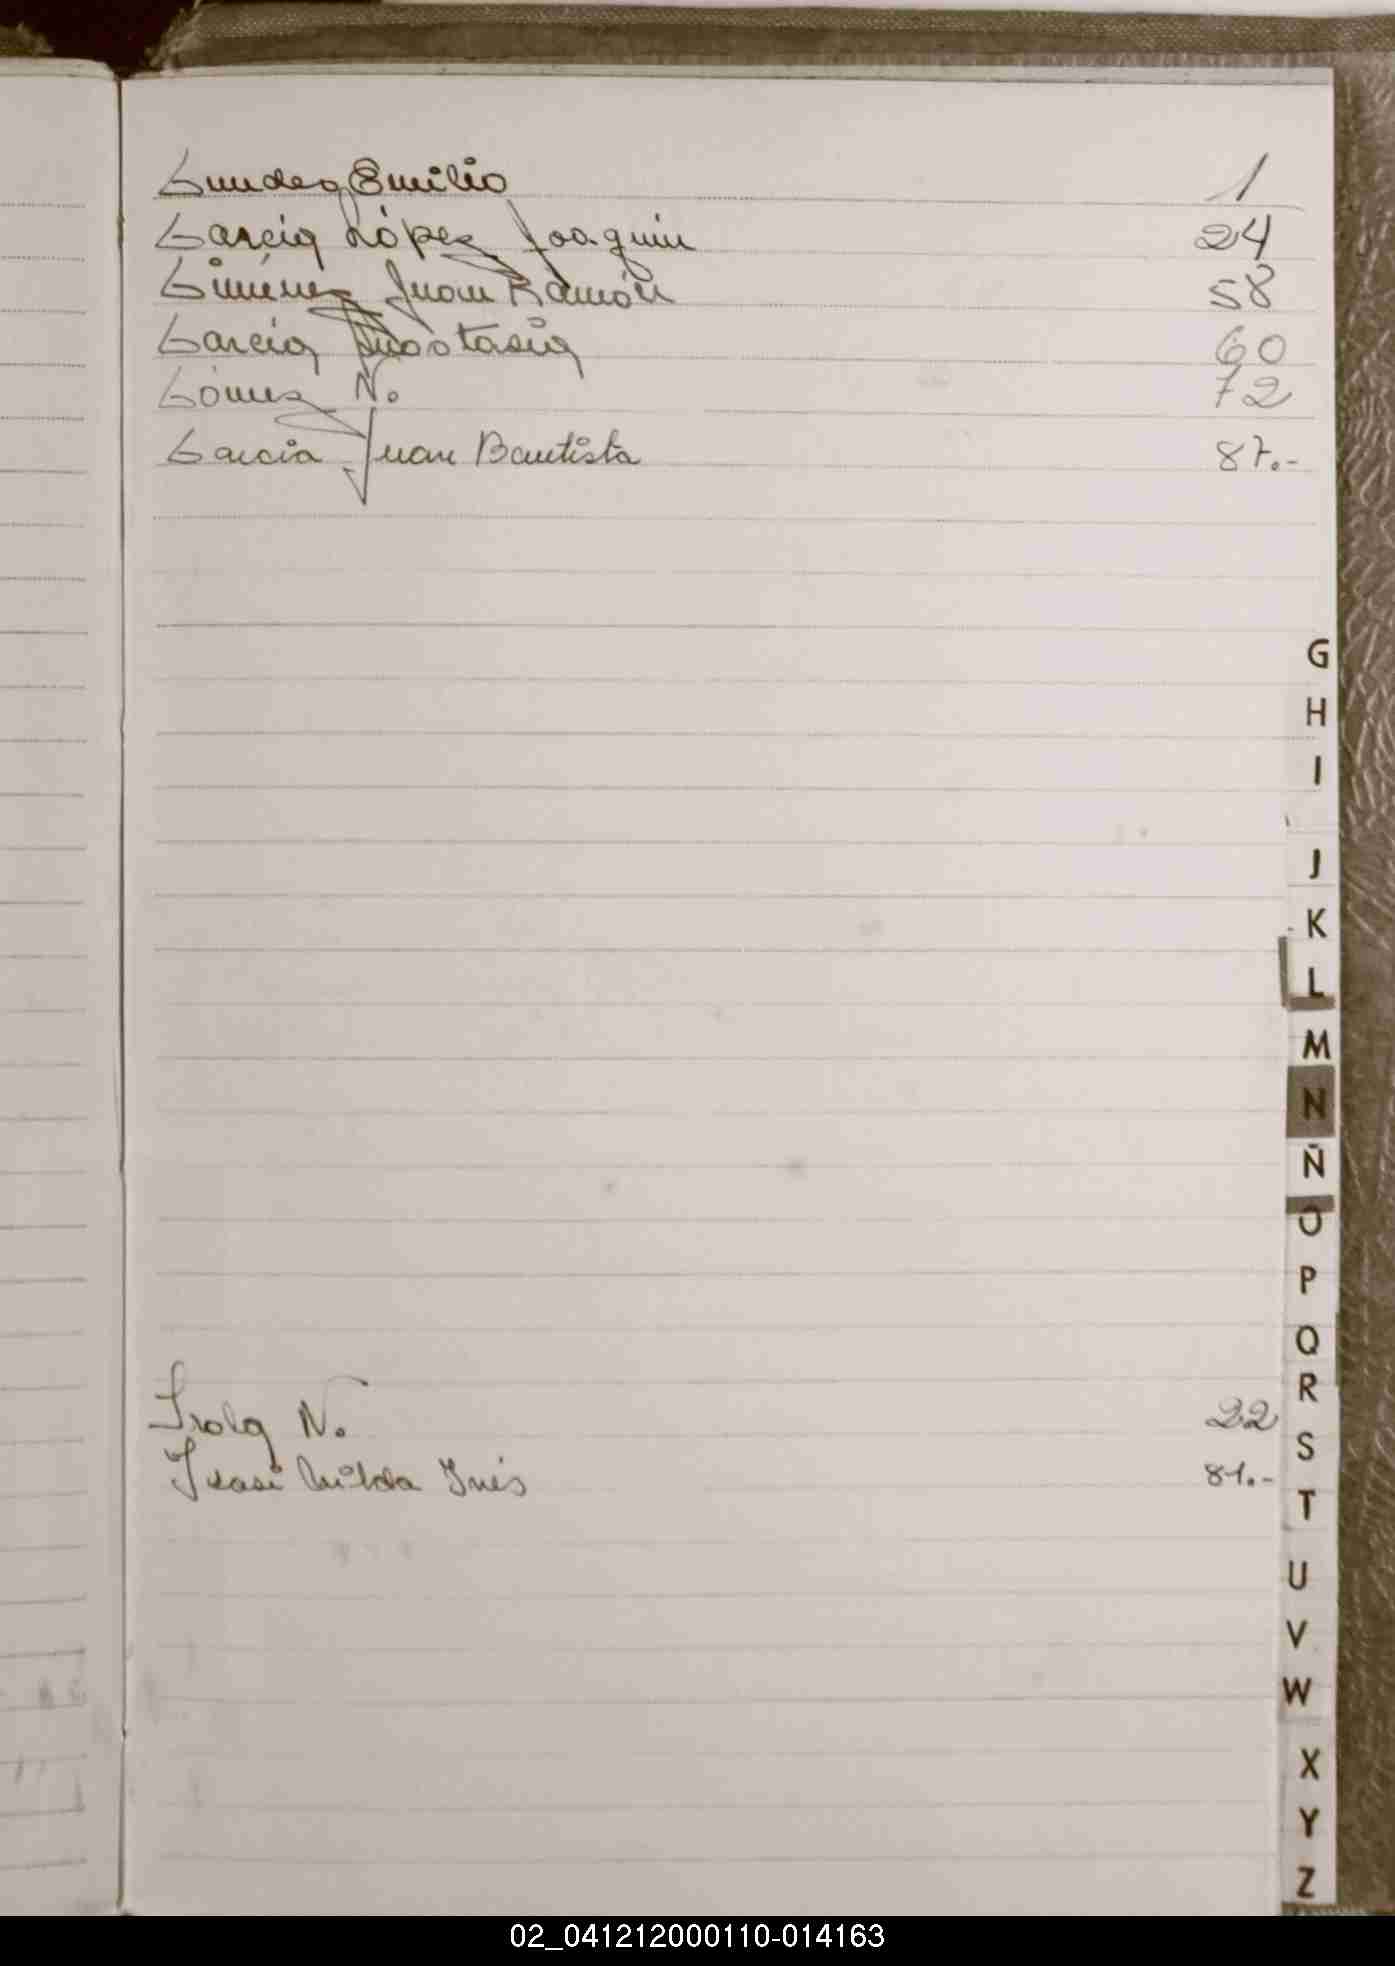 Emilio 1
García López Joaquin 24
Giménez Juan Ramón 58
García Anastasia 60
Gómez N. 72
Garcia Juan Bautista 87.-
G
H
I
J
K
L
M
N
Ñ
O
P
Q
R
S
T
U
V
W
X
Y
Z
N. 22
Isasi Nilda Inés 81.-
02_041212000110-014163